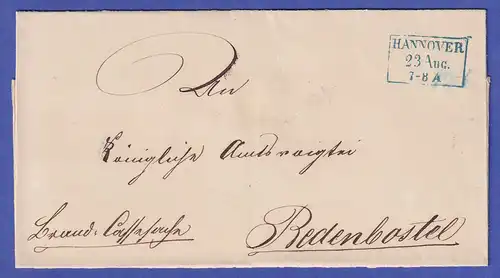 HANNOVER
23 Aug.
7-8 A
An
Königliche Amtsvoigtei
Brand: Cassesache
Bedenbostel